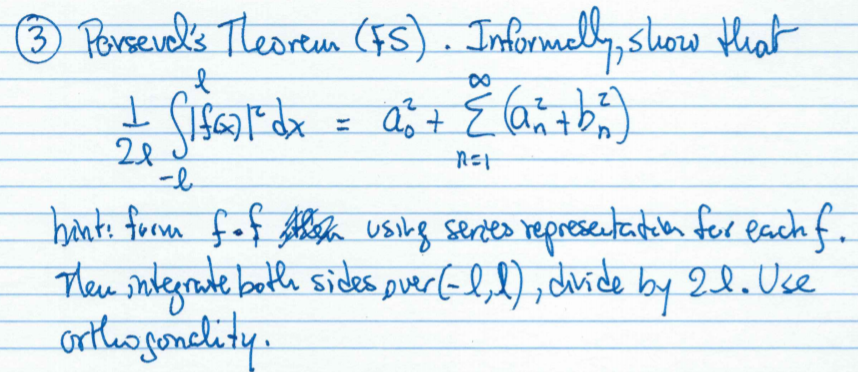 ③ Parseval's Theorem (FS). Informally, show that
1/2l ∫_{-l}^{l} |f(x)|² dx = a₀² + Σ_{n=1}^{∞} (aₙ² + bₙ²)
hint: form f·f using series representation for each f.
Then integrate both sides over (-l,l), divide by 2l. Use
orthogonality.